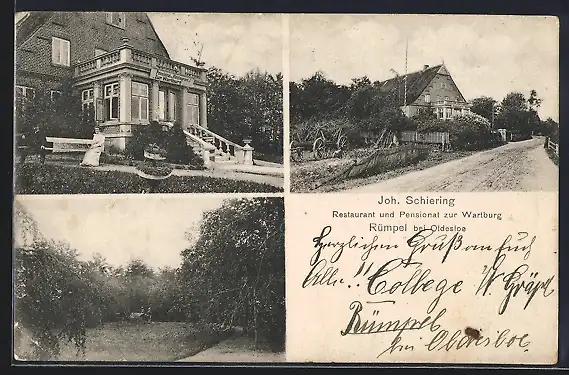 Joh. Schiering
Restaurant und Pensionat zur Wartburg
Rümpel bei Oldesloe
Herzlichen Gruß an Euch
Alle!! College W. Gräpel
Rümpel
bei Oldesloe.